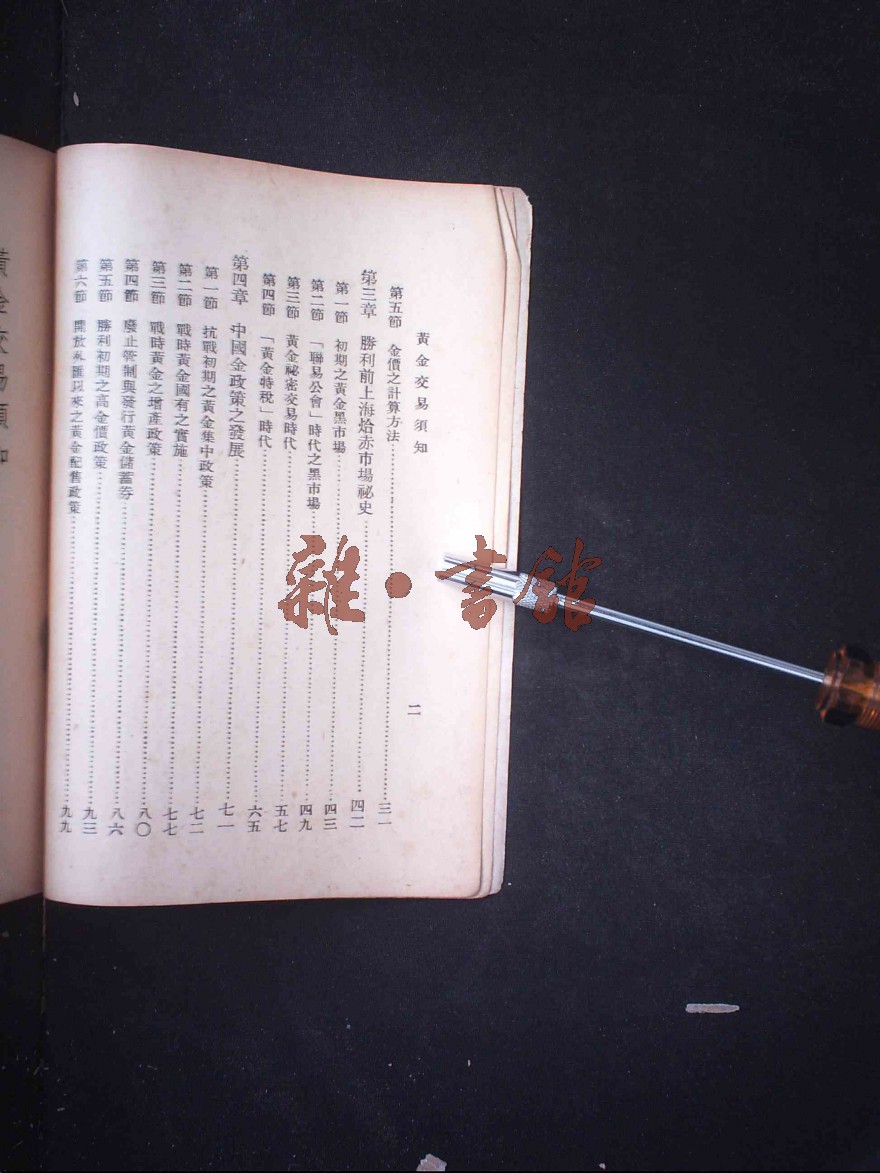 黃金交易須知
二
第五節 金價之計算方法…………三一
第三章 勝利前上海烚赤市場祕史…………四二
第一節 初期之黃金黑市場…………四三
第二節 「聯易公會」時代之黑市場…………四九
第三節 黃金祕密交易時代…………五七
第四節 「黃金特稅」時代…………六五
第四章 中國金政策之發展…………七一
第一節 抗戰初期之黃金集中政策…………七二
第二節 戰時黃金國有之實施…………七七
第三節 戰時黃金之增產政策…………八〇
第四節 廢止管制與發行黃金儲蓄券…………八六
第五節 勝利初期之高金價政策…………九三
第六節 開放外匯以來之黃金配售政策…………九九
黃金交易須知
雜·書館